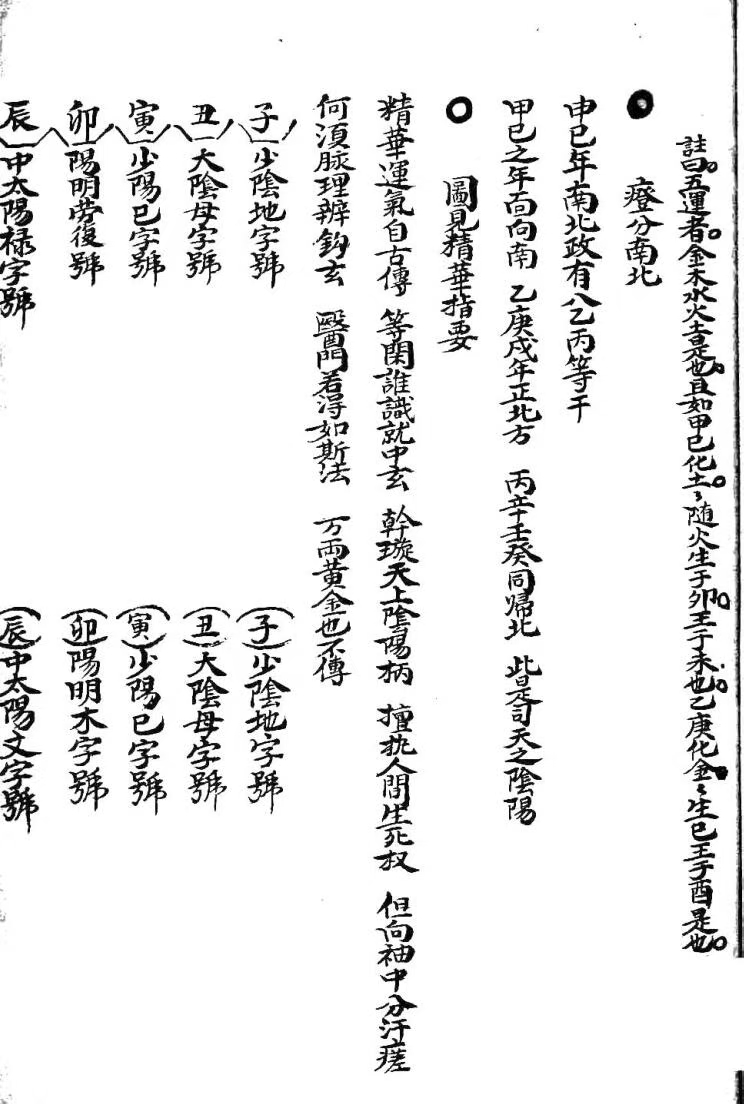 註曰五運者金木水火土是也且如甲己化土〻随火生于卯王于未也乙庚化金〻生巳王于酉是也
癈分南北
申巳年南北政有八乙丙等干
甲巳之年面向南 乙庚戌年正北方 丙辛壬癸同歸北 此是司天之陰陽
圖見精華指要
精華運氣自古傳 等閑誰識就中玄 幹璇天上陰陽柄 擅执人間生死权 但向袖中分汗瘥
何須脉理辨鈎玄 毉門若淂如斯法 万両黄金也不傳
子 少陰地字號 (子)少陰地字號
丑 大陰母字號 (丑)大陰母字號
寅 少陽巳字號 (寅)少陽巳字號
卯 陽明劳復號 (卯)陽明木字號
辰 中太陽禄字號 (辰)中太陽文字號